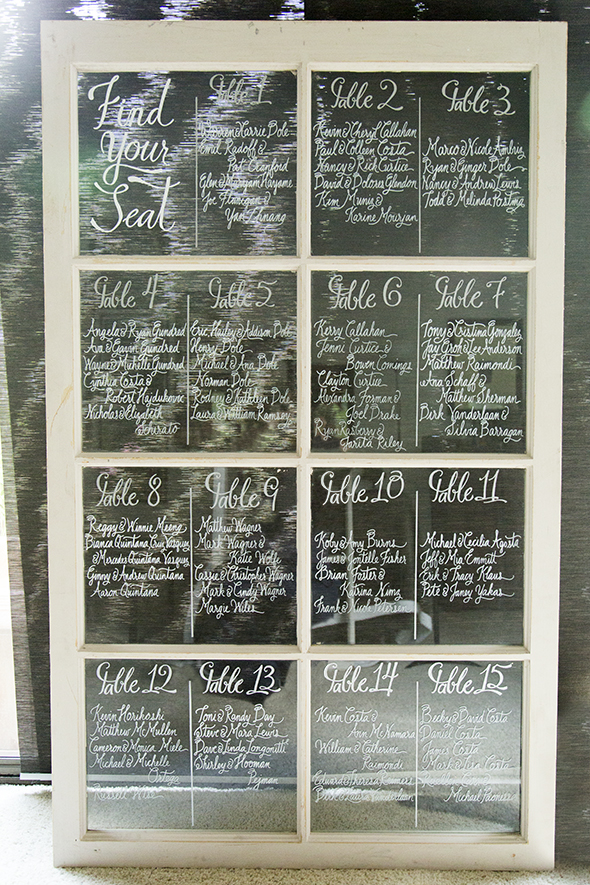 Find
Your
Seat
Table 1
Warren & Carrie Dole
Emil Radoff &
Pat Cranford
Glen & Maryam Haydane
Joe Flanigan &
Yan Zhhang
Table 2
Kevin & Cheryl Callahan
Paul & Colleen Costa
Nancy & Rick Curtice
David & Dolores Glendon
Kim Muniz &
Karine Mouryan
Table 3
Marco & Nicole Ambriz
Ryan & Ginger Dole
Nancy & Andrew Lewis
Todd & Melinda Postma
Table 4
Angela & Ryan Gundred
Ava & Gavin Gundred
Wayne & Michelle Gundred
Cynthia Costa &
Robert Hajdukovic
Nicholas & Elizabeth
Scherato
Table 5
Eric, Hailey & Addison Dole
Henry Dole
Michael & Ana Dole
Norman Dole
Rodney & Kathleen Dole
Laura & William Ramsey
Table 6
Kerry Callahan
Jenni Curtice &
Bowen Comings
Clayton Curtice
Alexandra Forman &
Joel Drake
Ryan Rasberry &
Tarita Riley
Table 7
Tony & Cristina Gonzalez
Jay Cron & Lee Anderson
Matthew Raimondi
Ana Schaff &
Matthew Sherman
Dirk Vanderlaan &
Silvia Barragan
Table 8
Reggy & Winnie Meeng
Bianca Quintana, Cruz Vasquez
& Mercedes Quintana Vasquez
Ginny & Andrew Quintana
Aaron Quintana
Table 9
Matthew Wagner
Mark Wagner &
Katie Wolfe
Cassie & Christopher Wagner
Mark & Cindy Wagner
Margie Wiles
Table 10
Koby & Amy Burns
James & Jontelle Fisher
Brian Foster &
Katrina Kimz
Frank & Nicole Petersen
Table 11
Michael & Cecilia Agosta
Jeff & Mia Emmitt
Erik & Tracy Klaus
Pete & Janey Yakas
Table 12
Kevin Horikoshi
Matthew McMullen
Cameron & Monica Miele
Michael & Michelle
Ortega
Table 13
Toni & Randy Day
Steve & Mara Lewis
Dave & Linda Longonitti
Shirley & Hooman
Pejman
Table 14
Kevin Costa &
Ann McNamara
William & Catherine
Raimondi
Edward & Theresa
Table 15
Becky & David Costa
Daniel Costa
James Costa
Mark & Lisa Costa
Michael